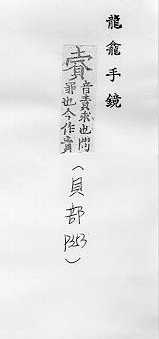 龍龕手鏡
賣
音責求也問
罪也今作責
(貝部
P353)